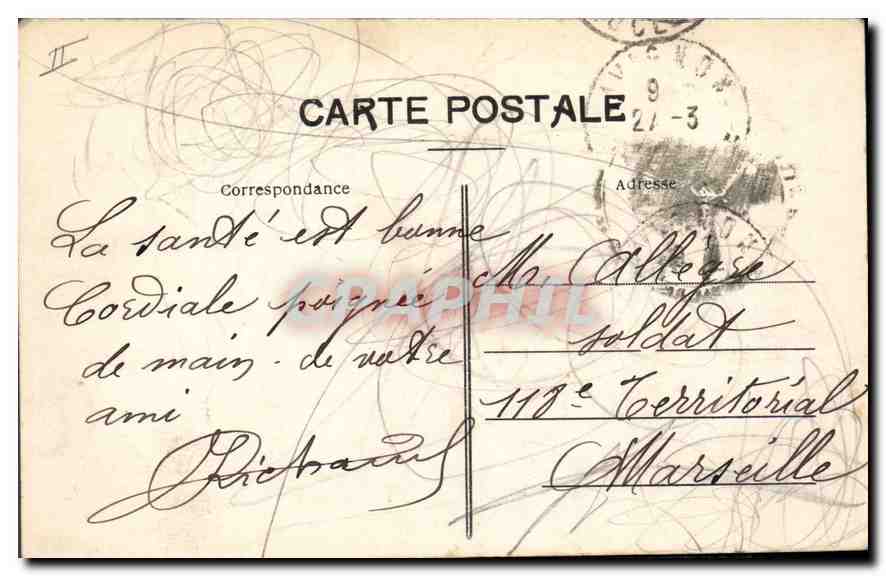 II
AVIGNON
9
27 -3
CARTE POSTALE
Correspondance
Adresse
La santé est bonne
Cordiale poignée
de main - de votre
ami
M. Allegre
soldat
118e Territorial
Marseille
CARTES POSTALES
CPAPHIL